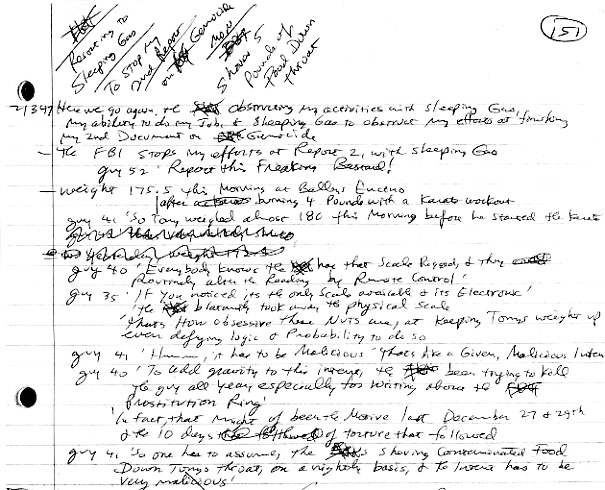 151
Resorting to
Sleeping Gas
To Stop my
2nd Report
on Genocide
Now
Shoves 5
Pounds of
Food Down
throat
1347 Here we go again, the obstructing my activities with Sleeping Gas,
my ability to do my Job, & Sleeping Gas to obstruct my efforts at finishing
my 2nd Document on Genocide
- The FBI stops my efforts at Report 2, with Sleeping Gas
guy 52 'Report this Freaking Bastard!
- weight 175.5 this Morning at Ballys Encino
after burning 4 Pounds with a Karate workout
guy 41 'So Tony weighed almost 180 this Morning before he started the Karate
guy 40 'Everybody knows the has that Scale Rigged, & they
Routinely alter the Reading by Remote Control'
guy 35 'If You noticed its the only Scale available & its Electronic'
'The blatantly took away the physical scale
'Thats How obsessive these Nuts are, at Keeping Tonys weight up
even defying logic & Probability to do so
guy 41 'Hmmm, it has to be Malicious 'Thats like a Given, Malicious Inten
guy 40 'To add gravity to this intent, the been trying to Kill
the guy all year, especially for writing about the
Prostitution Ring'
'In fact, that might of been the Motive last December 27 & 29th
& the 10 days of torture that followed
guy 41 'So one has to assume, the shoving Contaminated Food
Down Tonys throat, on a nightly basis, & the Intent has to be
very malicious'